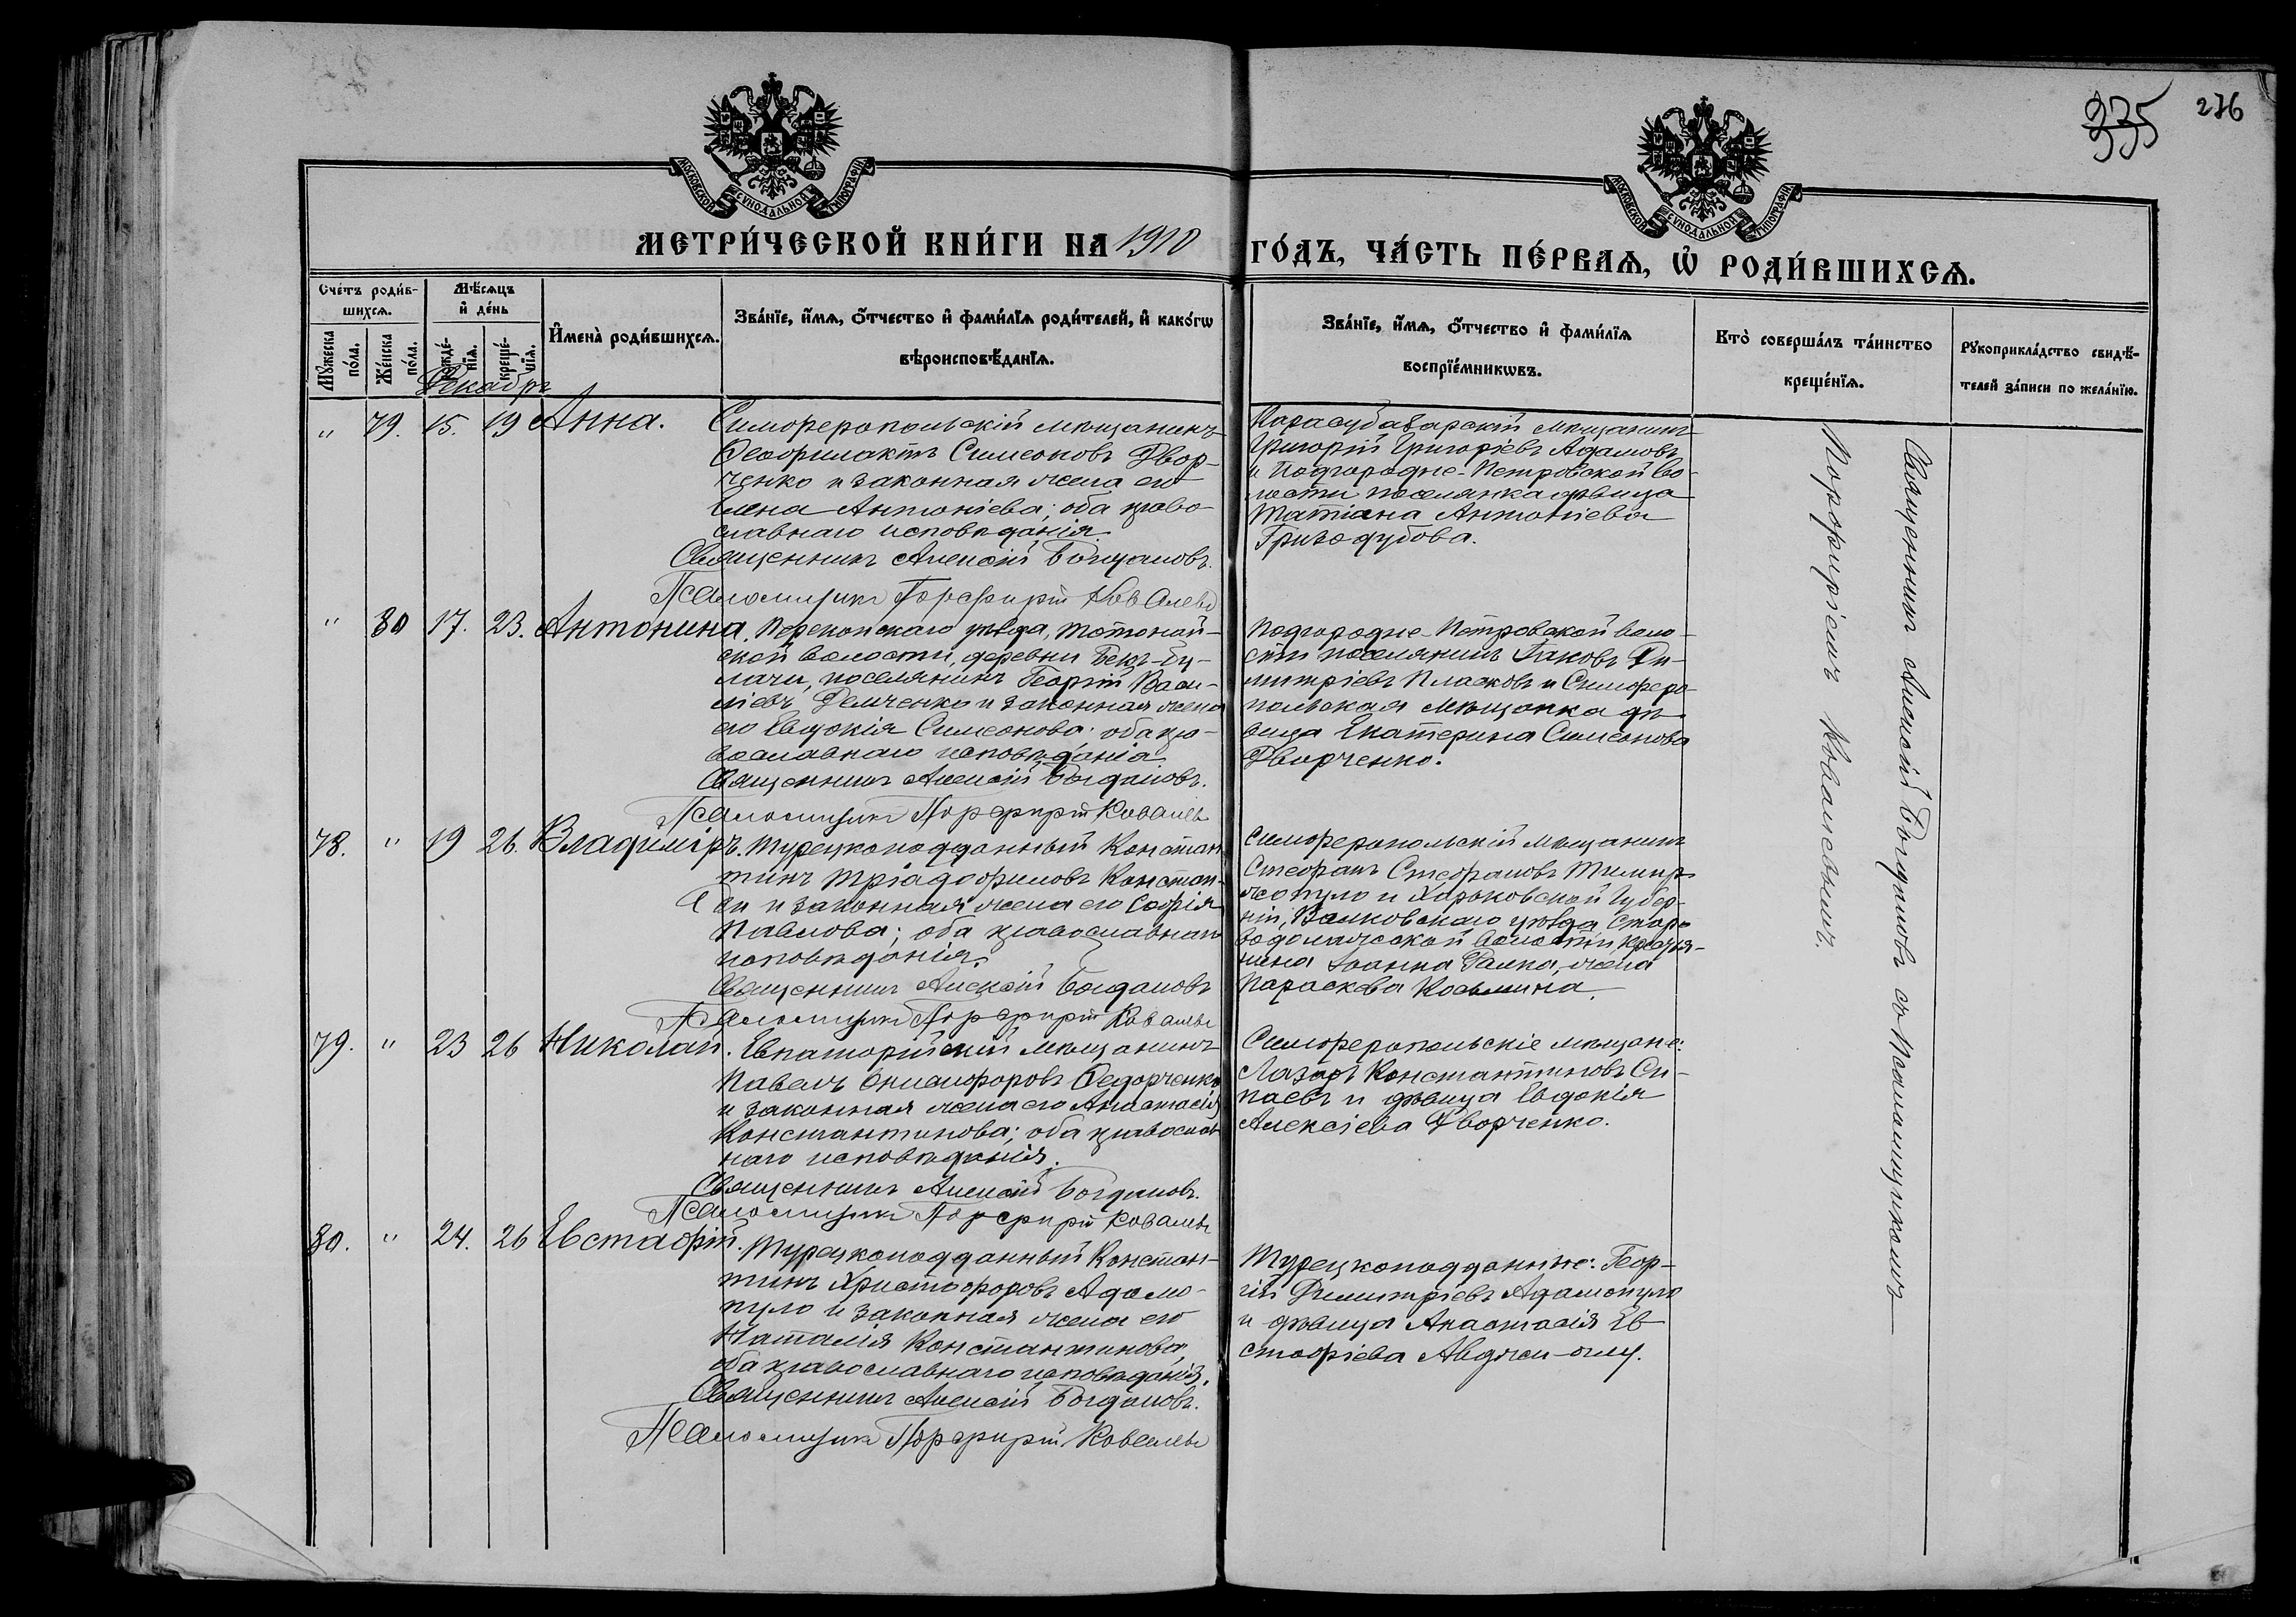 335 276
МОСКОВСКОЙ СѴНОДАЛЬНОЙ ТИПОГРАФІИ
МОСКОВСКОЙ СѴНОДАЛЬНОЙ ТИПОГРАФІИ
МЕТРИ́ЧЕСКОЙ КНИ́ГИ НА 1910 ГО́ДЪ, ЧА́СТЬ ПЕ́РВАѦ, Ѡ҆ РОДИ́ВШИХСѦ.
Сче́тъ роди́в-
шихсѧ.
Мꙋ́жеска по́ла.
Же́нска по́ла.
Мѣ́сѧцъ
и҆ де́нь
рожде́-
нїѧ.
креще́-
нїѧ.
И҆мена̀ роди́вшихсѧ.
Зва́нїе, и҆́мѧ, ѻ҆́тчество и҆ фами́лїѧ роди́телей, и҆ како́гѡ
вѣроисповѣ́данїѧ.
Зва́нїе, и҆́мѧ, ѻ҆́тчество и҆ фами́лїѧ
воспрїе́мникѡвъ.
Кто̀ соверша́лъ та́инство
креще́нїѧ.
Рꙋкоприкла́дство свидѣ́-
телей за́писи по жела́нїю.
Декабрь
" 79. 15. 19 Анна.
Симферопольскій мѣщанинъ
Феофилактъ Симеоновъ Двор-
ченко и законная жена его
Елена Антоніева; оба право-
славнаго исповѣданія.
Священникъ Алексій Богдановъ.
Псаломщикъ Порфирій Ковалевъ
Карасубазарскій мѣщанинъ
Григорій Григоріевъ Адамовъ
и Подгородне-Петровской во-
лости поселянка дѣвица
Татіана Антоніева
Гризодубова.
" 80 17. 23. Антонина.
Перекопскаго уѣзда, Тотонай-
ской волости, деревни Бекъ-Бу-
лачи, поселянинъ Георгій Васи-
ліевъ Демченко и законная жена
его Евдокія Симеонова; оба пра-
вославнаго исповѣданія
Священникъ Алексій Богдановъ.
Псаломщикъ Порфирій Ковалевъ
Подгородне-Петровской воло-
сти поселянинъ Іаковъ Ди-
митріевъ Пласковъ и Симферо-
польская мѣщанка дѣ-
вица Екатерина Симеонова
Дворченко.
78. " 19 26. Владиміръ.
Турецкоподданный Констан-
тинъ Тріадофиловъ Констан-
ди и законная жена его Софія
Павлова; оба православнаго
исповѣданія.
Священникъ Алексій Богдановъ
Псаломщикъ Порфирій Ковалевъ
Симферопольскій мѣщанинъ
Стефанъ Стефановъ Тимир-
жопуло и Харьковской Губер-
ніи, Валковскаго уѣзда Старо
водолажской волости крестья-
нина Іоанна Галка, жена
Параскева Косьмина.
79. " 23 26 Николай.
Евпаторійскій мѣщанинъ
Павелъ Онисифоровъ Федорченко
и законная жена его Анастасія
Константинова; оба православ-
наго исповѣданія.
Священникъ Алексій Богдановъ.
Псаломщикъ Порфирій Ковалевъ
Симферопольскіе мѣщане:
Лазарь Константиновъ Си-
паевъ и дѣвица Евдокія
Алексіева Дворченко.
80. " 24. 26 Евстафій.
Турецкоподданный Констан-
тинъ Христофоровъ Адамо-
пуло и законная жена его
Наталія Константинова,
оба православнаго исповѣданія.
Священникъ Алексій Богдановъ.
Псаломщикъ Порфирій Ковалевъ
Турецкоподданные: Геор-
гій Димитріевъ Адамопуло
и дѣвица Анастасія Ев-
стафіева Авджи-оглу.
Священникъ Алексій Богдановъ съ Псаломщикомъ
Порфиріемъ Ковалевымъ.